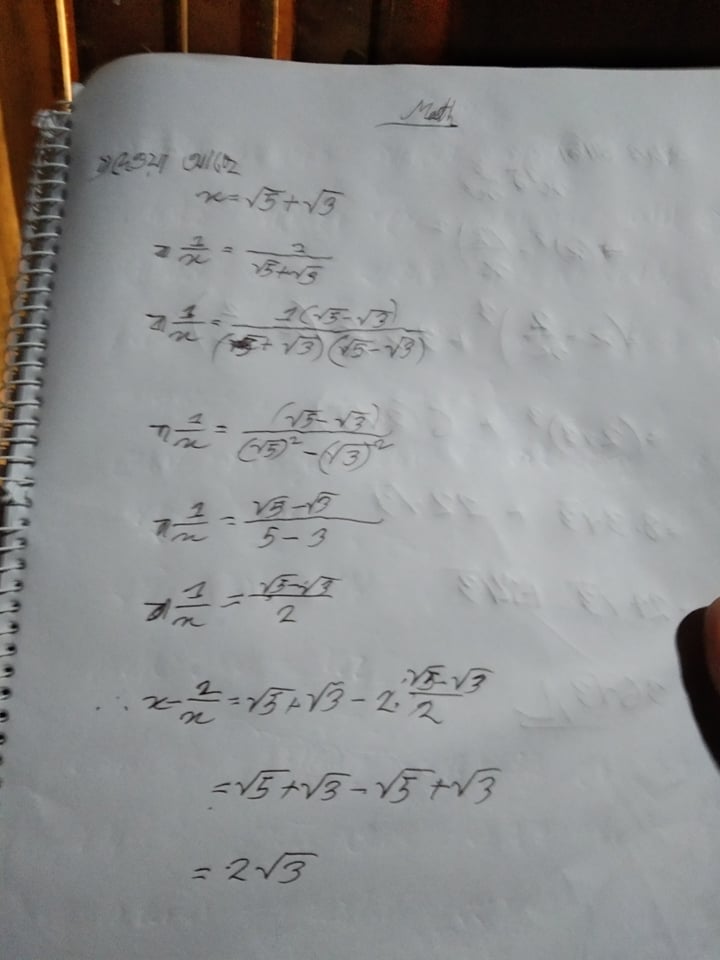 Math
দেওয়া আছে
x = √5 + √3
⇒ 1/x = 1/(√5 + √3)
⇒ 1/x = 1(√5 - √3)/((√5 + √3)(√5 - √3))
⇒ 1/x = (√5 - √3)/((√5)² - (√3)²)
⇒ 1/x = (√5 - √3)/(5 - 3)
⇒ 1/x = (√5 - √3)/2
∴ x - 2/x = √5 + √3 - 2 · (√5 - √3)/2
= √5 + √3 - √5 + √3
= 2√3